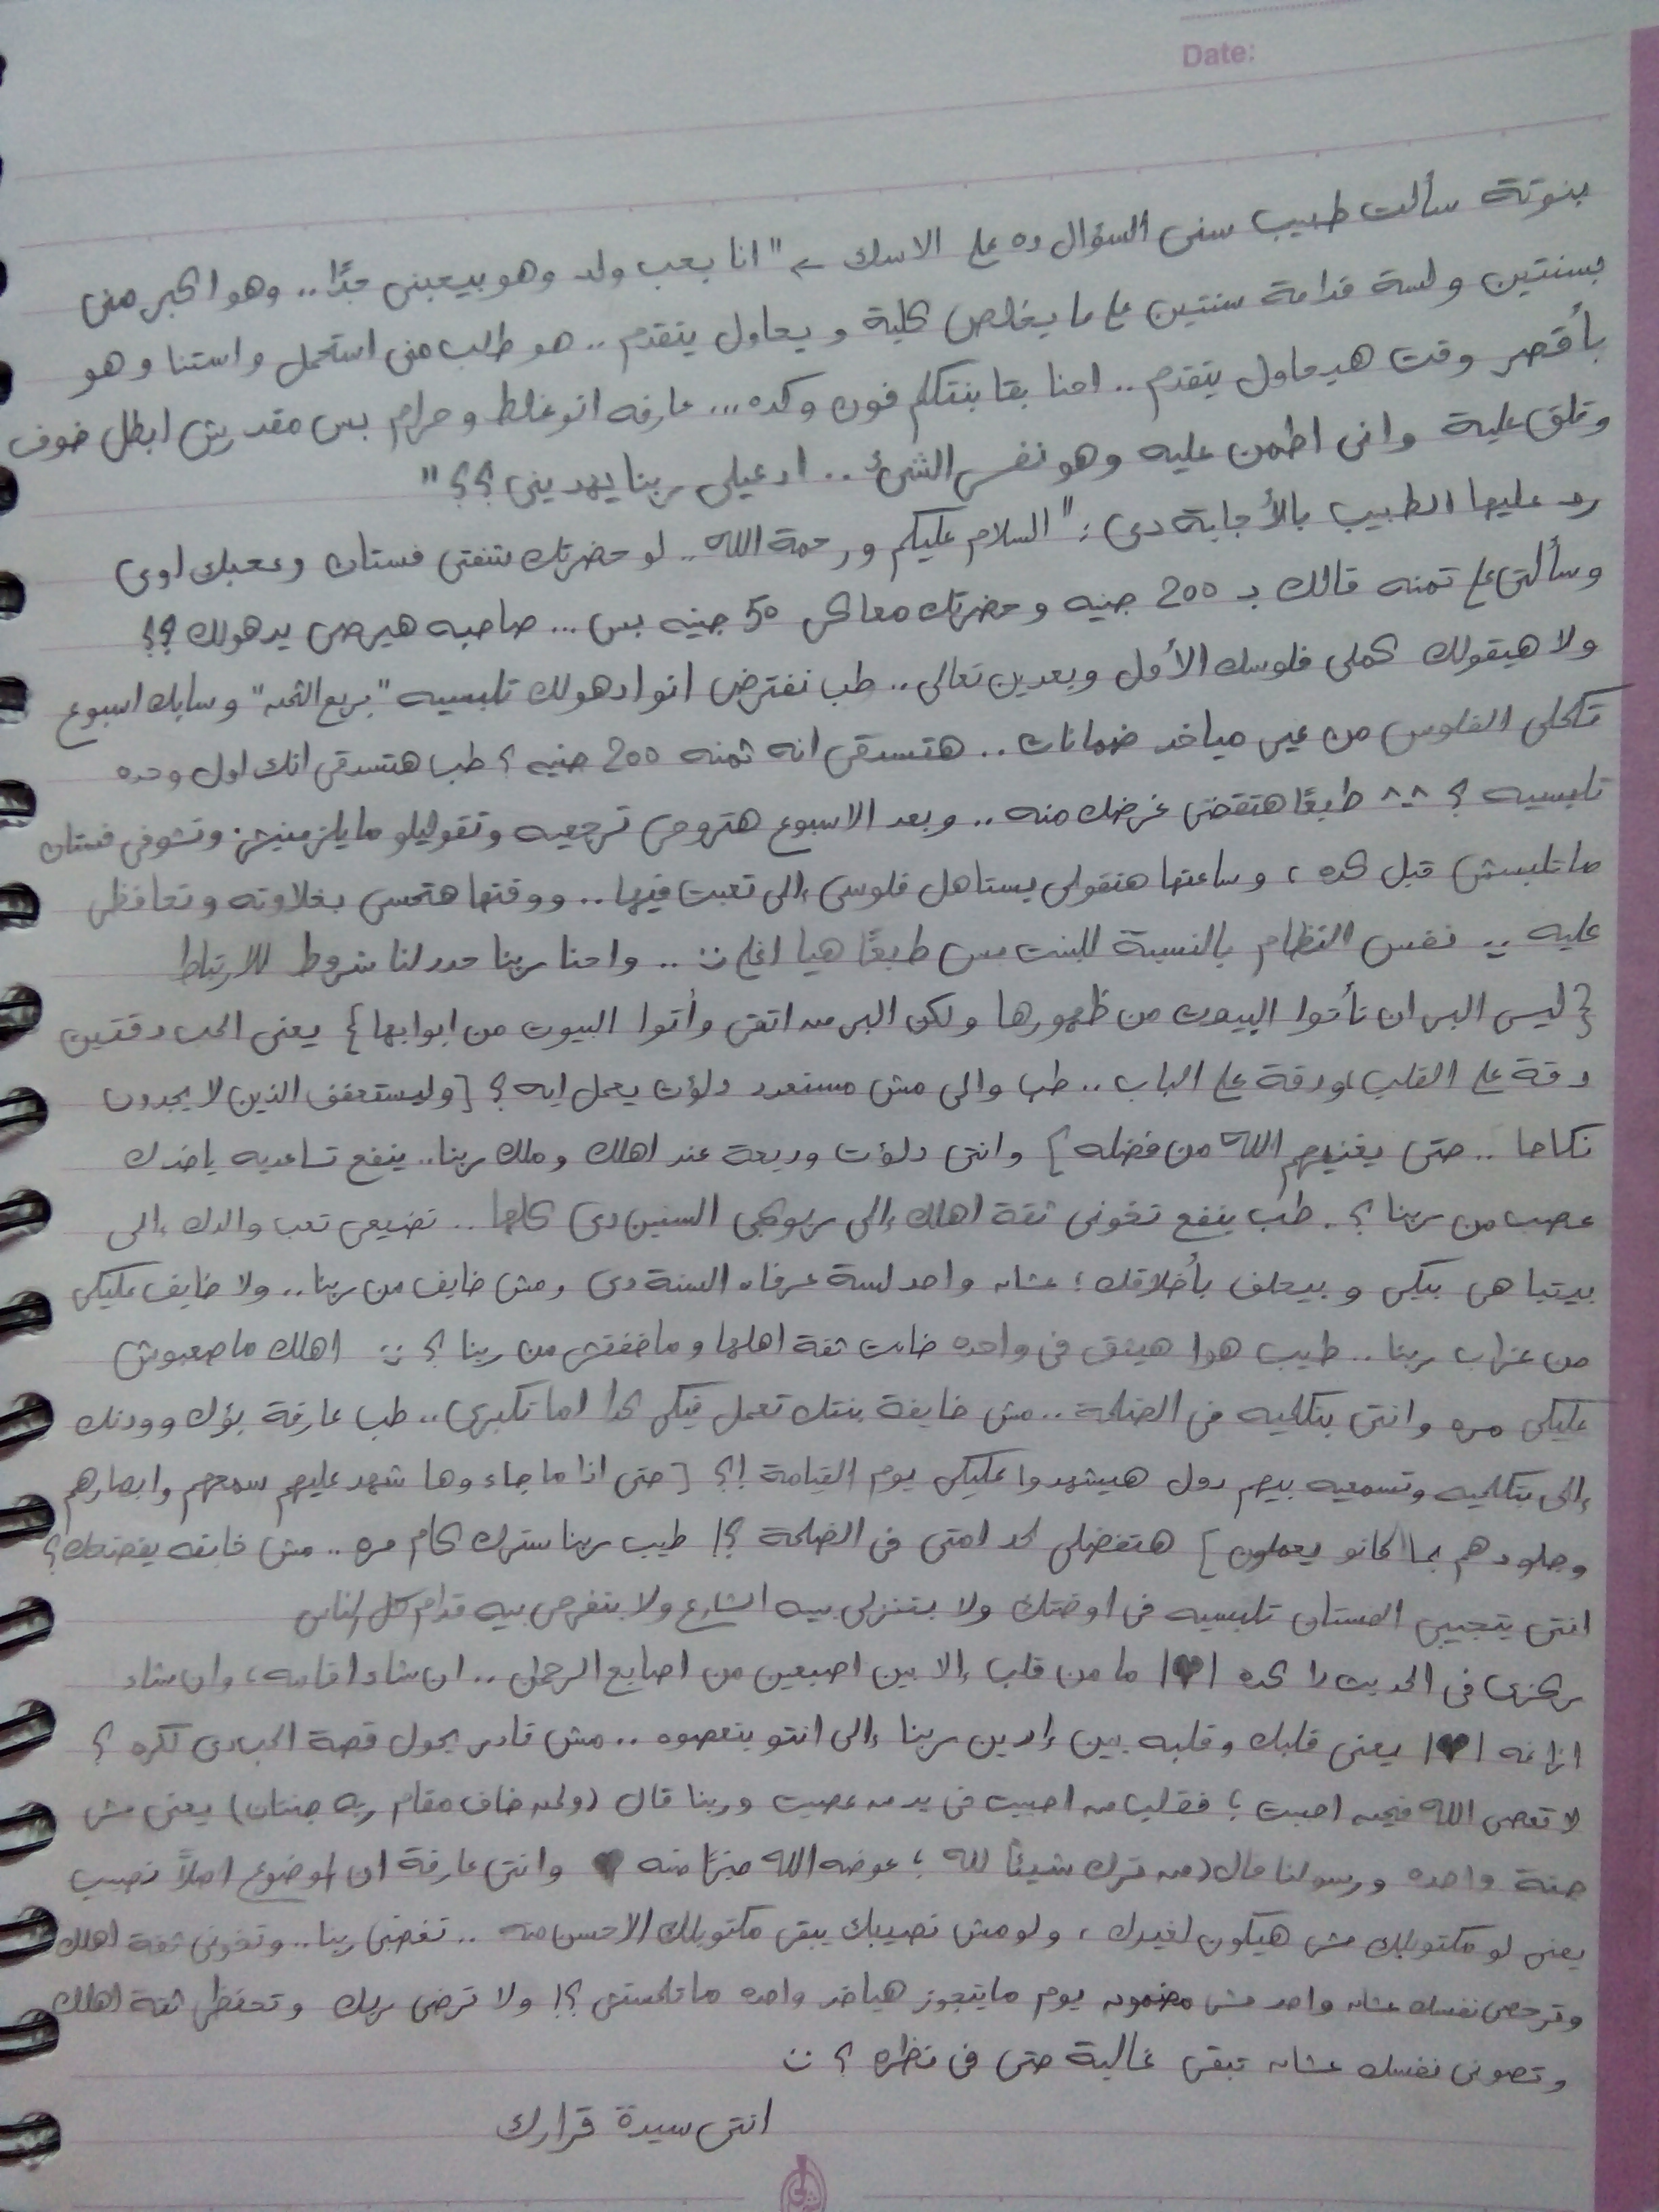 Date:
بنوتة سألت طبيب سنى السؤال ده على الاسك ← "انا بحب ولد وهو بيحبنى جدًا .. وهو اكبر منى
بسنتين ولسة قدامة سنتين على ما يخلص كلية و يحاول يتقدم .. هو طلب منى استحمل واستنا وهو
بأقصر وقت هيحاول يتقدم .. احنا بقا بنتكلم فون وكده ... عارفه انو غلط وحرام بس مقدرش ابطل خوف
وقلق علية وانى اطمن عليه وهو نفس الشئ .. ادعيلى ربنا يهدينى ؟؟ "
رد عليها الطبيب بالأجابة دى : " السلام عليكم ورحمة الله .. لو حضرتك شفتى فستان وعجبك اوى
وسألتى على تمنه قالك بـ 200 جنيه وحضرتك معاكى 50 جنيه بس ... صاحبه هيرضى يدهولك ؟؟
ولا هيقولك كملى فلوسك الأول وبعدين تعالى .. طب نفترض انو ادهولك تلبسيه "بربع التمن" وسابك اسبوع
تكملى الفلوس من غير مياخد ضمانات .. هتسدقى انه ثمنه 200 جنيه ؟ طب هتسدقى انك اول وحده
تلبسيه ؟ ^.^ طبعًا هتقضى غرضك منه .. وبعد الاسبوع هتروحى ترجعيه وتقوليلو ما يلزمنيش وتشوفى فستان
ماتلبسش قبل كده ، وساعتها هتقولى يستاهل فلوسى إلى تعبت فيها .. ووقتها هتحسى بغلاوته وتحافظى
عليه .. نفس النظام بالنسبة للبنت بس طبعًا هيا اغلى :) .. واحنا ربنا حدد لنا شروط للارتباط
{ ليس البر ان تأتوا البيوت من ظهورها ولكن البر من اتقى وأتوا البيوت من ابوابها } يعنى الحب دقتين
دقة على القلب ودقة على الباب .. طب والى مش مستعدد دلؤت يعمل ايه ؟ [ وليستعفف الذين لا يجدون
نكاحا .. حتى يغنيهم الله من فضله ] وانتى دلؤت وديعة عند اهلك وملك ربنا .. ينفع تساعديه ياخدك
غصب من ربنا ؟ . طب ينفع تخونى ثقة اهلك إلى ربوكى السنين دى كلها .. تضيعى تعب والدك إلى
بيتباهى بيكى و بيحلف بأخلاقك ؛ عشان واحد لسة عرفاه السنة دى ومش خايف من ربنا .. ولا خايف عليكى
من عذاب ربنا .. طيب هوا هيثق فى واحده خانت ثقة اهلها وما خفتش من ربنا ؟ :) اهلك ماصعبوش
عليكى مره وانتى بتكلميه فى الضلمة .. مش خايفة بنتك تعمل فيكى كدا لما تكبرى .. طب عارفة بؤك وودنك
إلى بتكلميه وتسمعيه بيهم دول هيشهدوا عليكى يوم القيامة !؟ [ حتى اذا ما جاءوها شهد عليهم سمعهم وابصارهم
وجلودهم بما كانو يعملون ] هتفضلى لحد امتى فى الضلمة ؟! طيب ربنا سترك كام مره .. مش خايفه يفضحك ؟
انتى بتجيبى الفستان تلبسيه فى اوضتك ولا بتنزلى بيه الشارع ولا بتفرحى بيه قدام كل الناس
ركزى فى الحديث دا كده | ♥ | ما من قلب إلا بين اصبعين من اصابع الرحمن .. ان شاء اقامه ، وان شاء
ازاغه | ♥ | يعنى قلبك وقلبه بين إدين ربنا إلى انتو بتعصوه .. مش قادر يحول قصة الحب دى لكره ؟
لا تعصى الله فيمن احببت ؛ فقلب من احببت فى يد من عصيت وربنا قال ( ولمن خاف مقام ربه جنتان ) يعنى مش
جنة واحده ورسولنا قال ( من ترك شيئًا لله ؛ عوضه الله خيرًا منه ♥ وانتى عارفة ان الموضوع اصلاً نصيب
يعنى لو مكتوبلك مش هيكون لغيرك ، ولو مش نصيبك يبقى مكتوبلك الاحسن منه .. تغضبى ربنا .. وتخونى ثقة اهلك
وترخصى نفسك عشان واحد مش مضمون يوم ما يتجوز هياخد واحده ماتلمستش ؟! ولا ترضى ربك وتحفظى ثقة اهلك
وتصونى نفسك عشان تبقى غالية حتى فى نظره ؟ :)
انتى سيدة قرارك